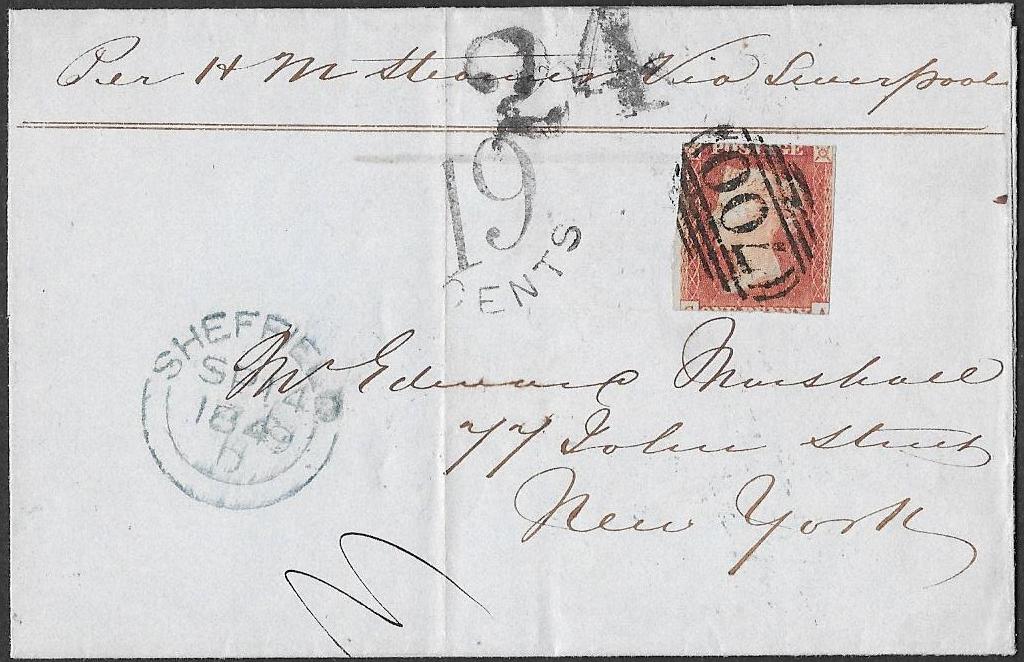 Per H M Steamer Via Liverpool
24
19
CENTS
POSTAGE
700
ONE PENNY A
SHEFFIELD
SP 14
1849
D
Mr Edward Marshall
77 John Street
New York